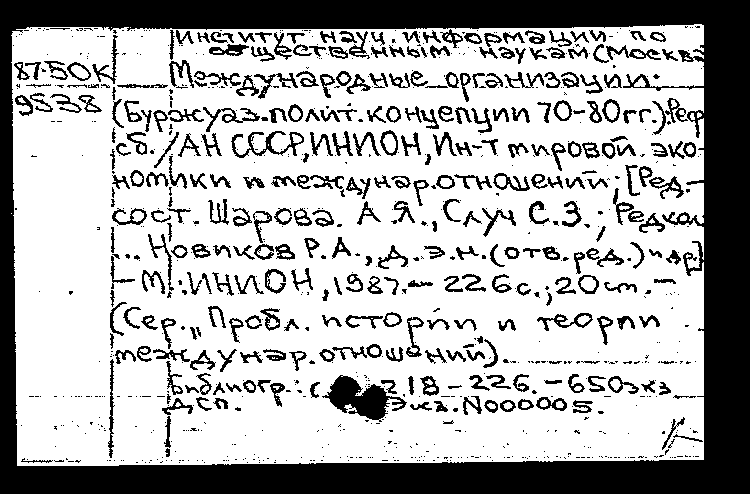 Институт науч. информации по
общественным наукам (Москва
87-50К
Международные организации:
9538
(Буржуаз. полит. концепции 70-80 гг.): Реф
сб. / АН СССР, ИНИОН, Ин-т мировой эко-
номики и междунар. отношений; [Ред.-
сост. Шарова А.Я., Случ С.З.; Редкол
... Новиков Р.А., д.э.н. (отв. ред.) и др.]
– М.: ИНИОН, 1987. – 226 с.; 20 см. –
(Сер. „Пробл. истории и теории
междунар. отношений).
Библиогр.: с. 218-226. – 650 экз
ДСП. Экз. N000005.